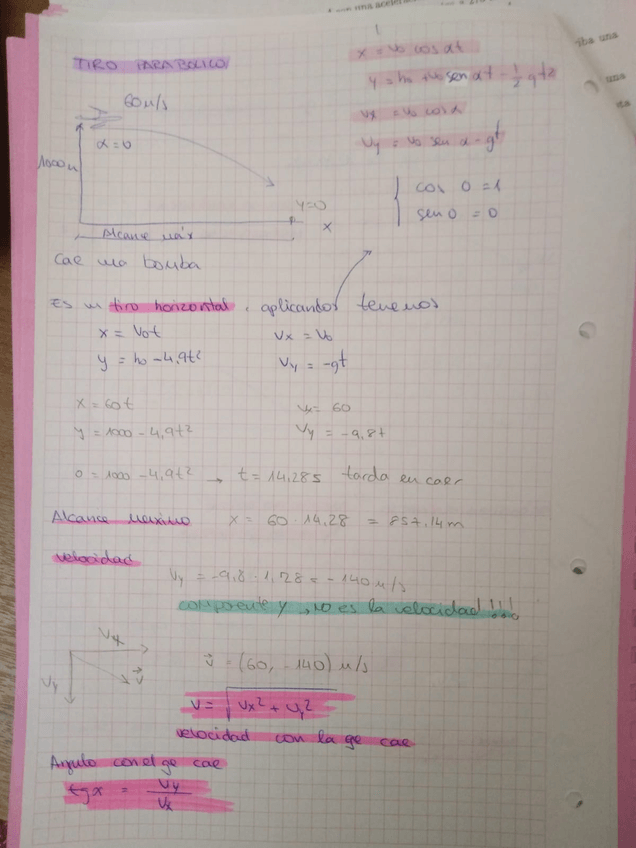 TIRO PARABOLICO
x = v₀ cos αt
y = h₀ + v₀ sen αt - 1/2 gt2
vx = v₀ cos α
Vy = v₀ sen α - gt
60 m/s
α = 0
1000m
y=0
x
Alcance máx
cos 0 = 1
sen 0 = 0
Cae una bomba
Es un tiro horizontal, aplicandos tenemos
x = V₀t
Vx = V₀
y = h₀ - 4,9t²
Vy = -gt
x = 60t
Vx = 60
y = 1000 - 4,9t²
Vy = -9,8t
0 = 1000 - 4,9t² → t = 14,28s tarda en caer
Alcance maximo x = 60 · 14,28 = 857,14m
velocidad
Vy = -9,8 · 1,28 = -140 m/s
componente y, no es la velocidad!!!
Vx
Vy
v⃗
v⃗ = (60, -140) m/s
V = √Vx² + Vy²
velocidad con la qe cae
Angulo con el qe cae
tg x = Vy/Vx
iba una
una